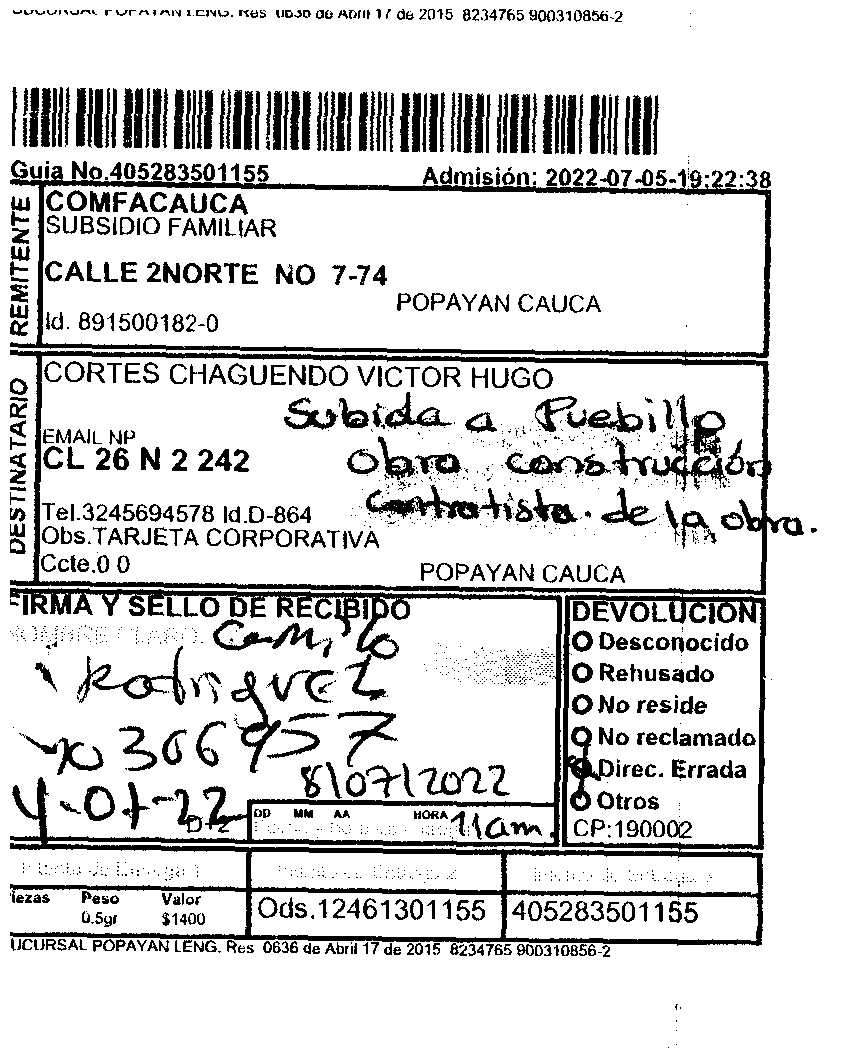 SUCURSAL POPAYAN LENG. Res 0636 de Abril 17 de 2015 8234765 900310856-2
Guia No.405283501155
Admisión: 2022-07-05-19:22:38
REMITENTE
COMFACAUCA
SUBSIDIO FAMILIAR
CALLE 2NORTE NO 7-74
POPAYAN CAUCA
Id. 891500182-0
DESTINATARIO
CORTES CHAGUENDO VICTOR HUGO
Subida a Puebillo
EMAIL NP
CL 26 N 2 242
Obra construcción
Contratista. de la obra.
Tel.3245694578 Id.D-864
Obs.TARJETA CORPORATIVA
Ccte.0 0
POPAYAN CAUCA
FIRMA Y SELLO DE RECIBIDO
NOMBRE CLARO.
Camilo
Rodriguez
306957
8/07/2022
DD MM AA HORA
11am.
DEVOLUCION
Desconocido
Rehusado
No reside
No reclamado
Direc. Errada
Otros
CP:190002
iezas Peso Valor
0.5gr $1400
Ods.12461301155
405283501155
UCURSAL POPAYAN LENG. Res 0636 de Abril 17 de 2015 8234765 900310856-2